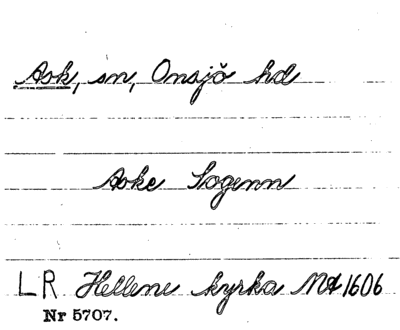 Ask, sn, Onsjö hd
Aske Sogenn
LR Hellene kyrka Mt 1606
Nr 5707.